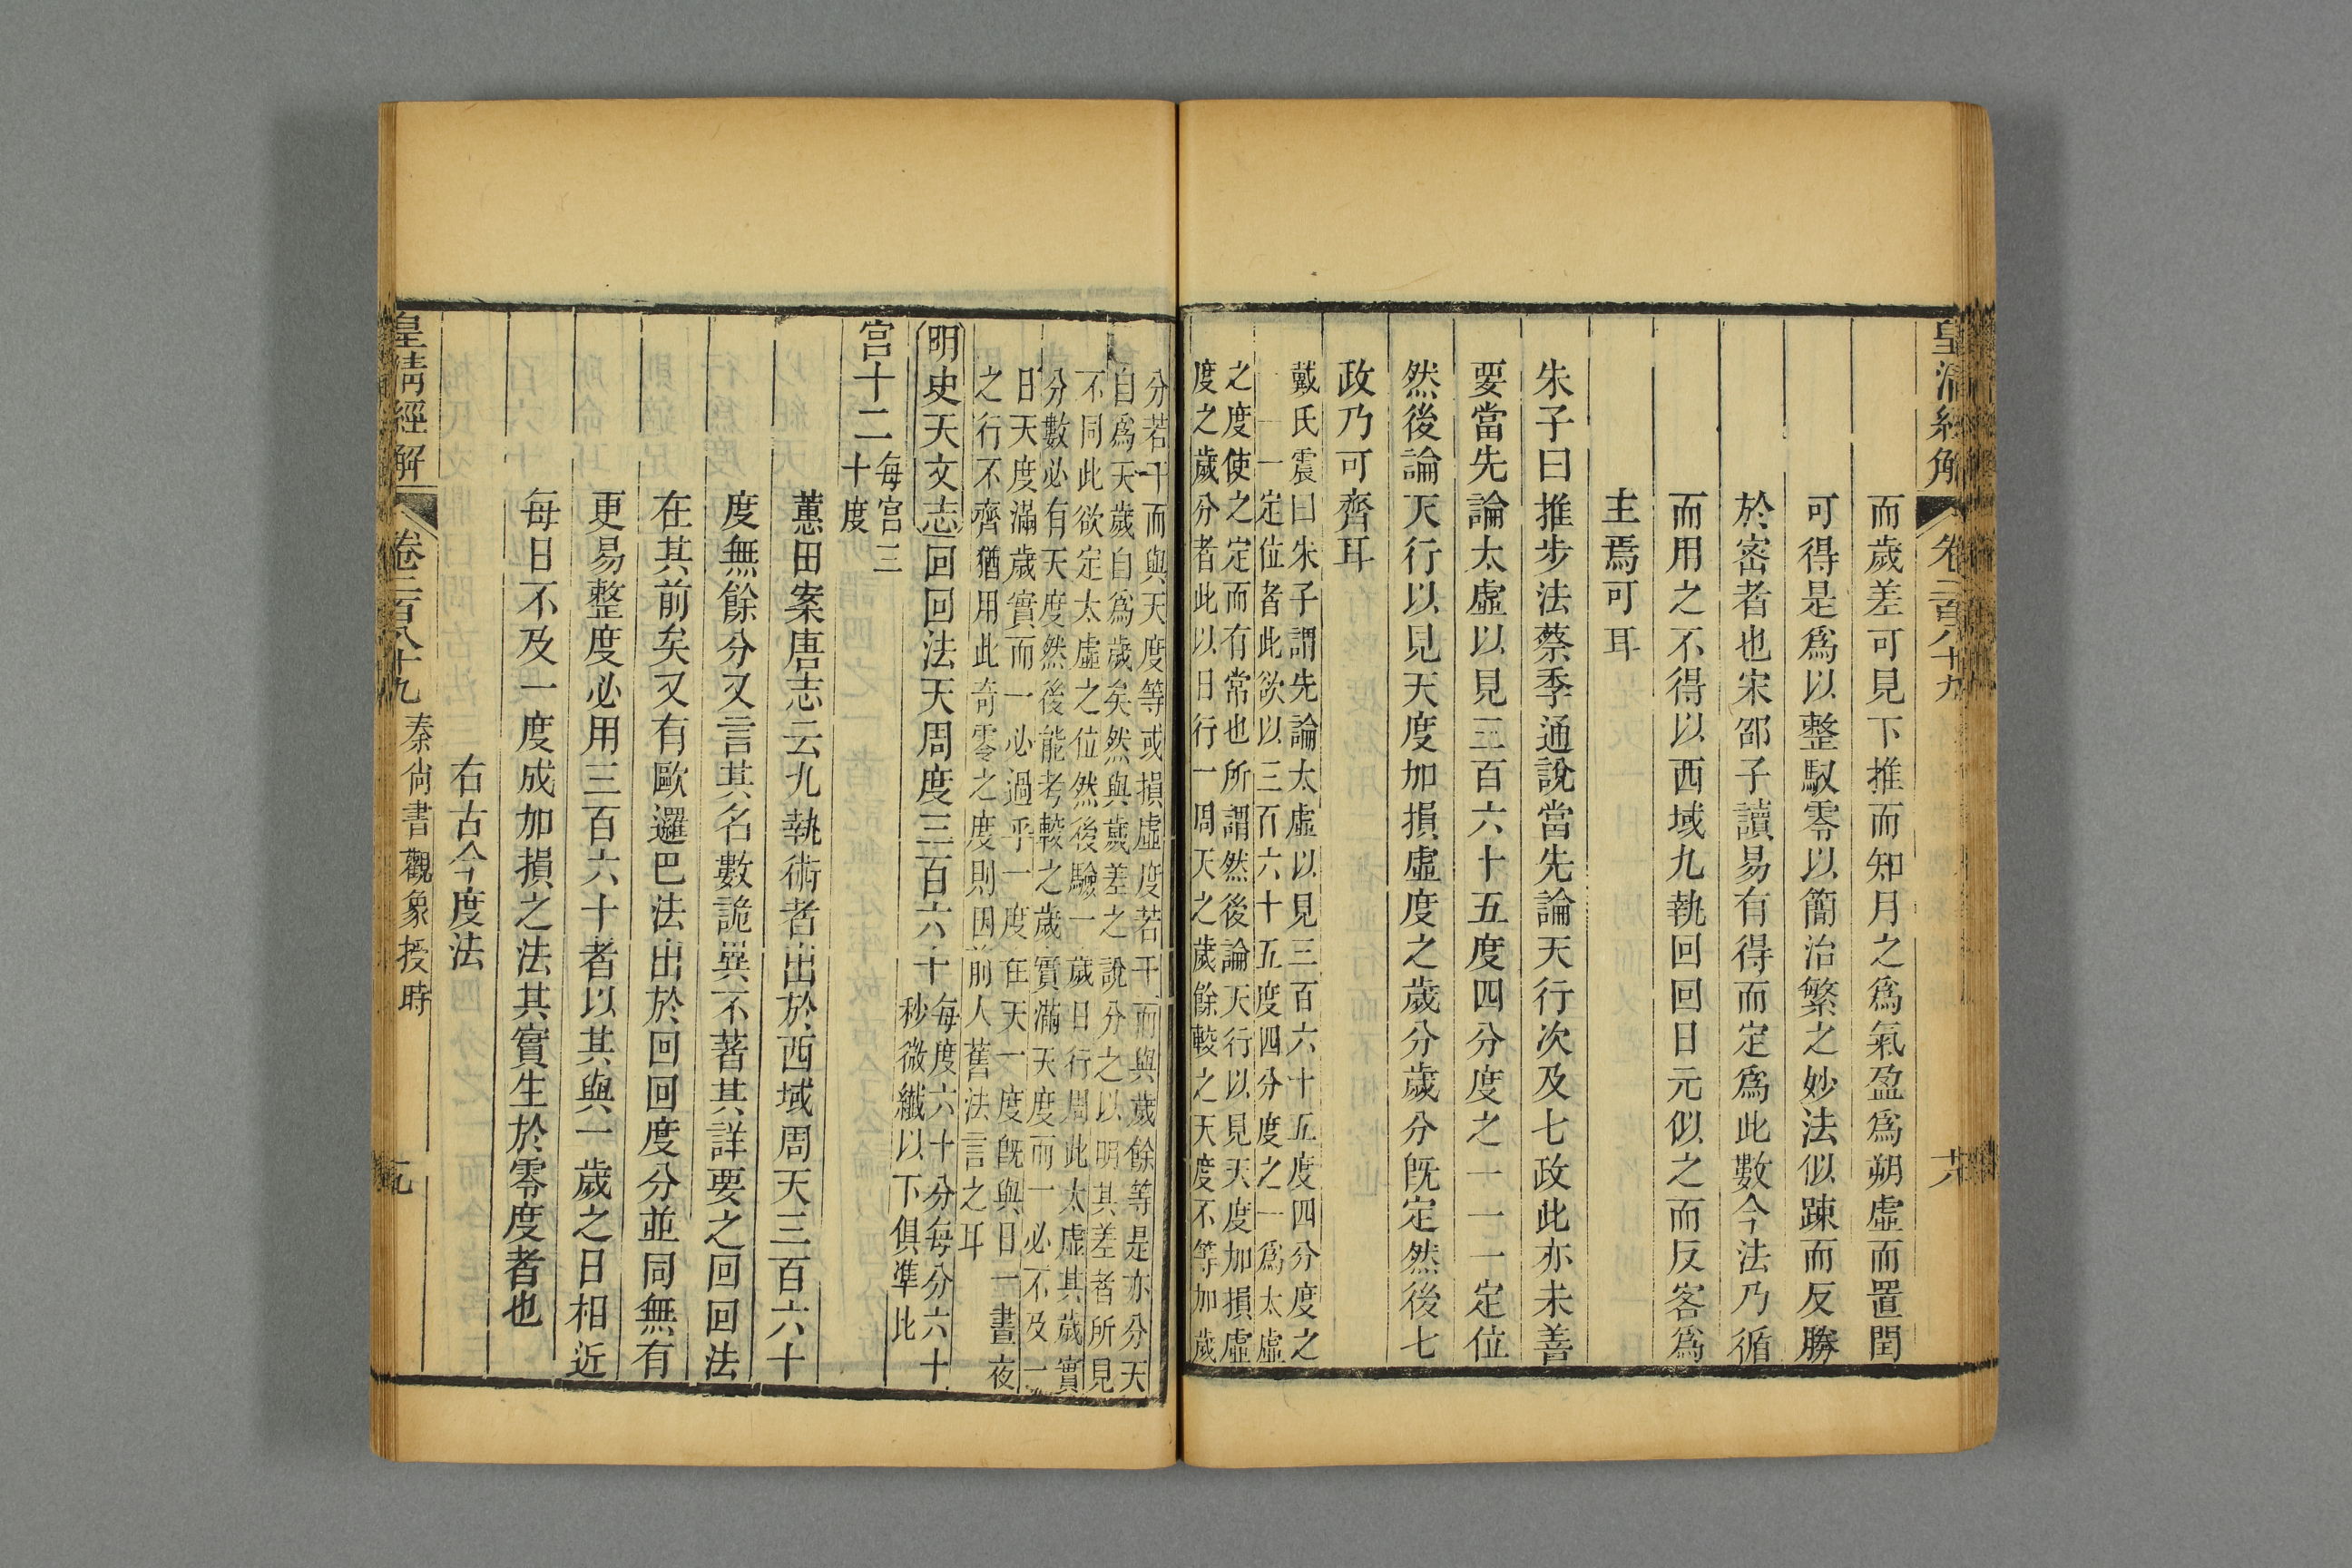 皇清經解
卷二百八十九
六
而歲差可見下推而知月之爲氣盈爲朔虛而置閏
可得是爲以整馭零以簡治繁之妙法似踈而反勝
於密者也宋邵子讀易有得而定爲此數今法乃循
而用之不得以西域九執回回日元似之而反客爲
主焉可耳
朱子曰推步法蔡季通說當先論天行次及七政此亦未善
要當先論太虛以見三百六十五度四分度之一一一定位
然後論天行以見天度加損虛度之歲分歲分旣定然後七
政乃可齊耳
戴氏震曰朱子謂先論太虛以見三百六十五度四分度之
一一一定位者此欲以三百六十五度四分度之一爲太虛
之度使之定而有常也所謂然後論天行以見天度加損虛
度之歲分者此以日行一周天之歲餘較之天度不等加歲
分若干而與天度等或損虛度若干而與歲餘等是亦分天
自爲天歲自爲歲矣然與歲差之說分之以明其差者所見
不同此欲定太虛之位然後驗一歲日行周此太虛其歲實
分數必有天度然後能考較之歲實滿天度而一必不及一
日天度滿歲實而一必過乎一度在天一度旣與日一晝夜
之行不齊猶用此奇零之度則因前人舊法言之耳
明史天文志回回法天周度三百六十每度六十分每分六十
秒微纖以下俱準比
宮十二每宮三
十度
蕙田案唐志云九執術者出於西域周天三百六十
度無餘分又言其名數詭異不著其詳要之回回法
在其前矣又有歐邏巴法出於回回度分並同無有
更易整度必用三百六十者以其與一歲之日相近
每日不及一度成加損之法其實生於零度者也
右古今度法
皇清經解
卷二百八十九
秦尙書觀象授時